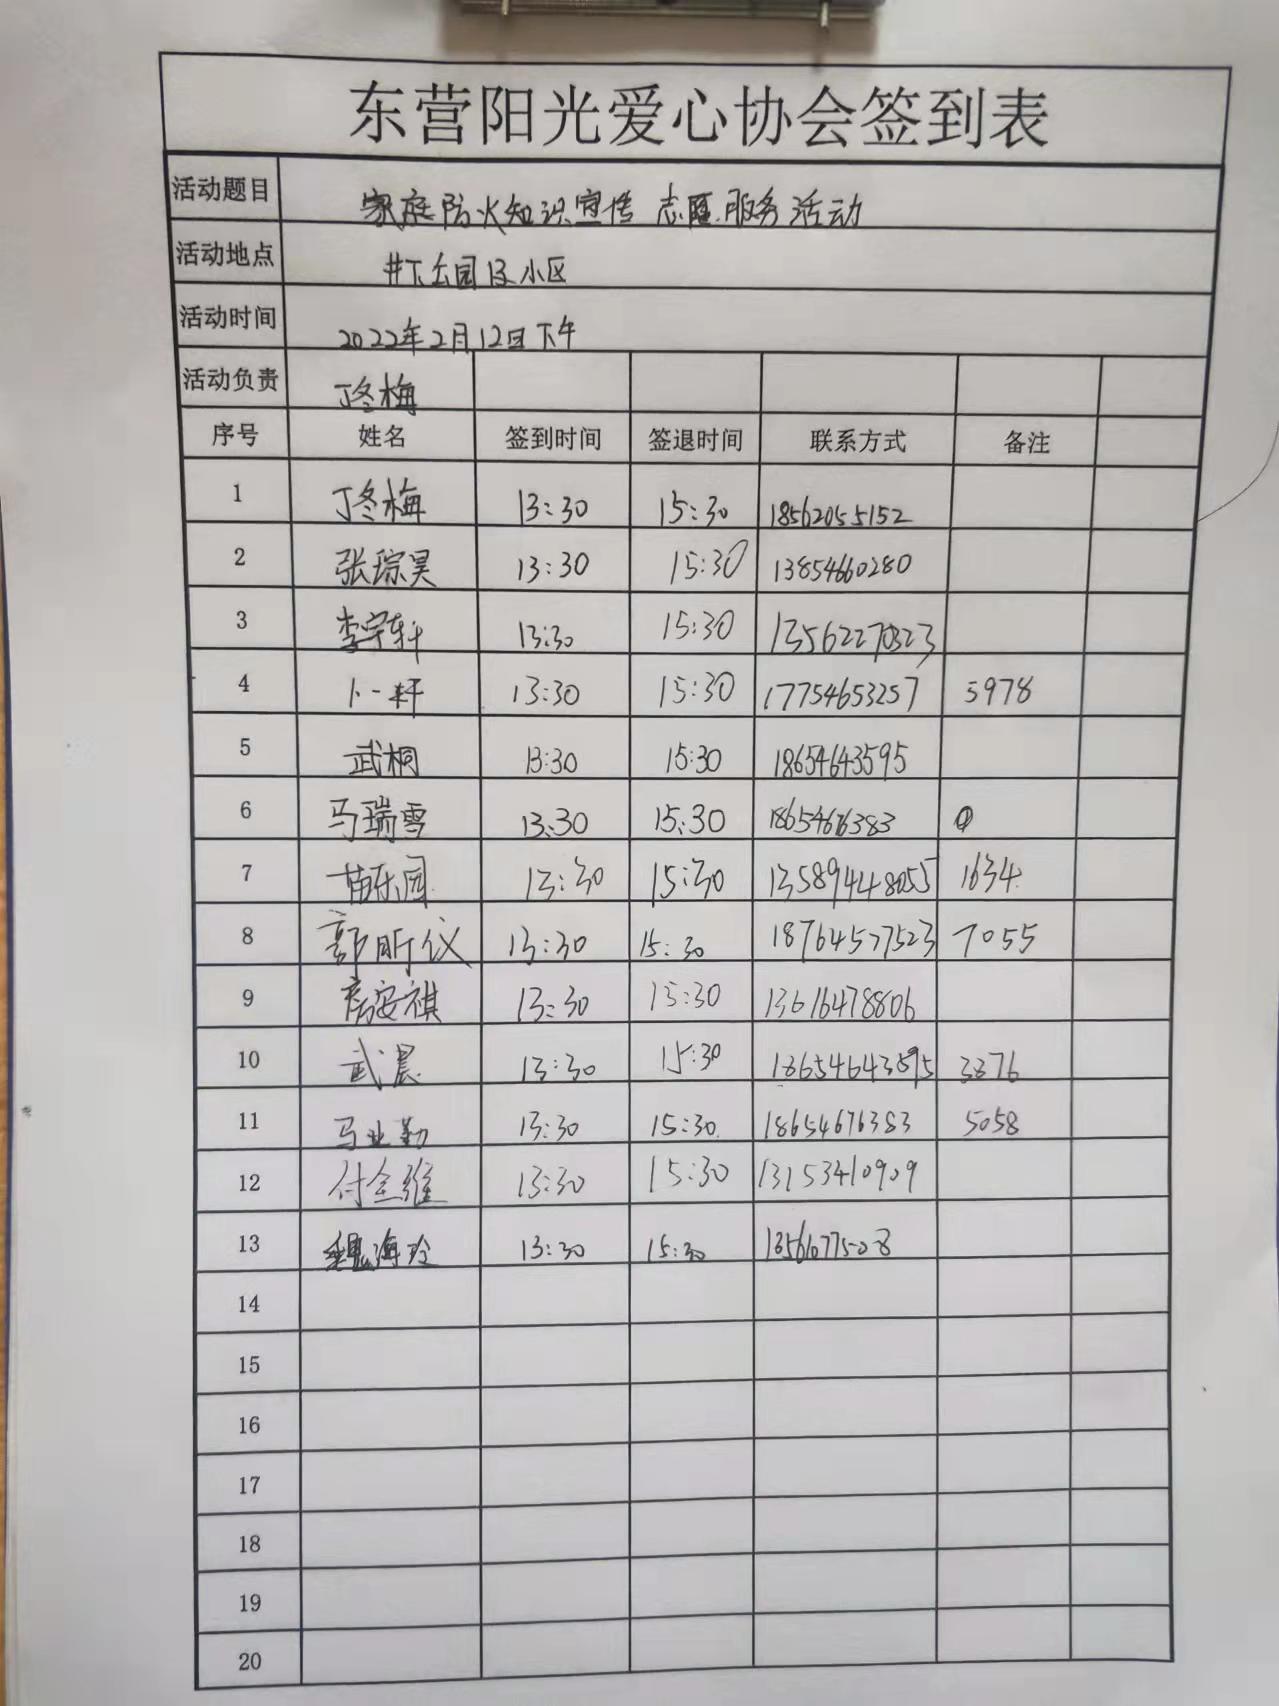 东营阳光爱心协会签到表
活动题目 家庭防火知识宣传 志愿服务活动
活动地点 井下公园B小区
活动时间 2022年2月12日下午
活动负责 丁冬梅
序号 姓名 签到时间 签退时间 联系方式 备注
1 丁冬梅 13:30 15:30 18562055152
2 张琮昊 13:30 15:30 13854660280
3 李宇轩 13:30 15:30 13562270323
4 卜一轩 13:30 15:30 17754653257 5978
5 武桐 13:30 15:30 18654643595
6 马瑞雪 13:30 15:30
7 苗乐园 13:30 15:30 13589448055 1634
8 郭昕仪 13:30 15:30 18764577523 7055
9 房安祺 13:30 15:30 13616478806
10 武晨 13:30 15:30 18654643595 3876
11 马业勤 13:30 15:30 18654676383 5058
12 付全维 13:30 15:30 13153410909
13 魏海玲 13:30 15:30
14
15
16
17
18
19
20